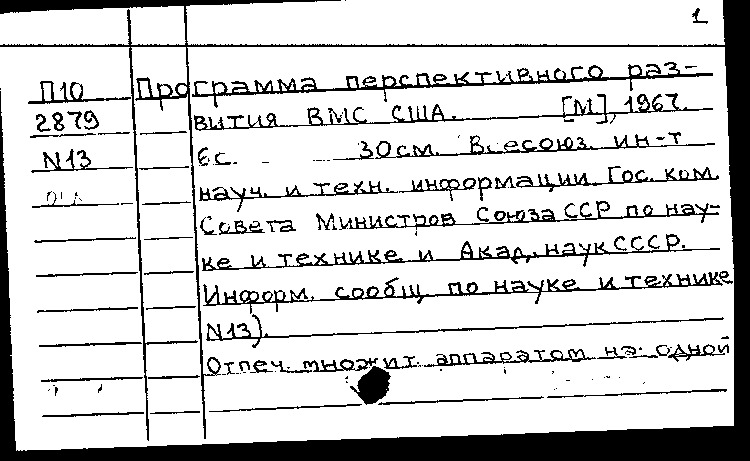 1
П10 Программа перспективного раз-
2879 вития ВМС США. [М], 1967.
N13 6с. 30см. Всесоюз. ин-т
науч. и техн. информации. Гос. ком.
Совета Министров Союза ССР по нау-
ке и технике и Акад. наук СССР.
Информ. сообщ. по науке и технике
N13).
Отпеч. множит. аппаратом на одной